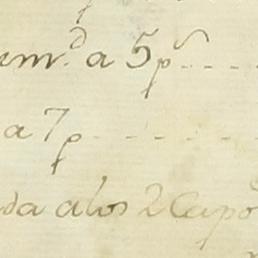 um.d a 5 p.s
a 7 p
da a los 2 Capo